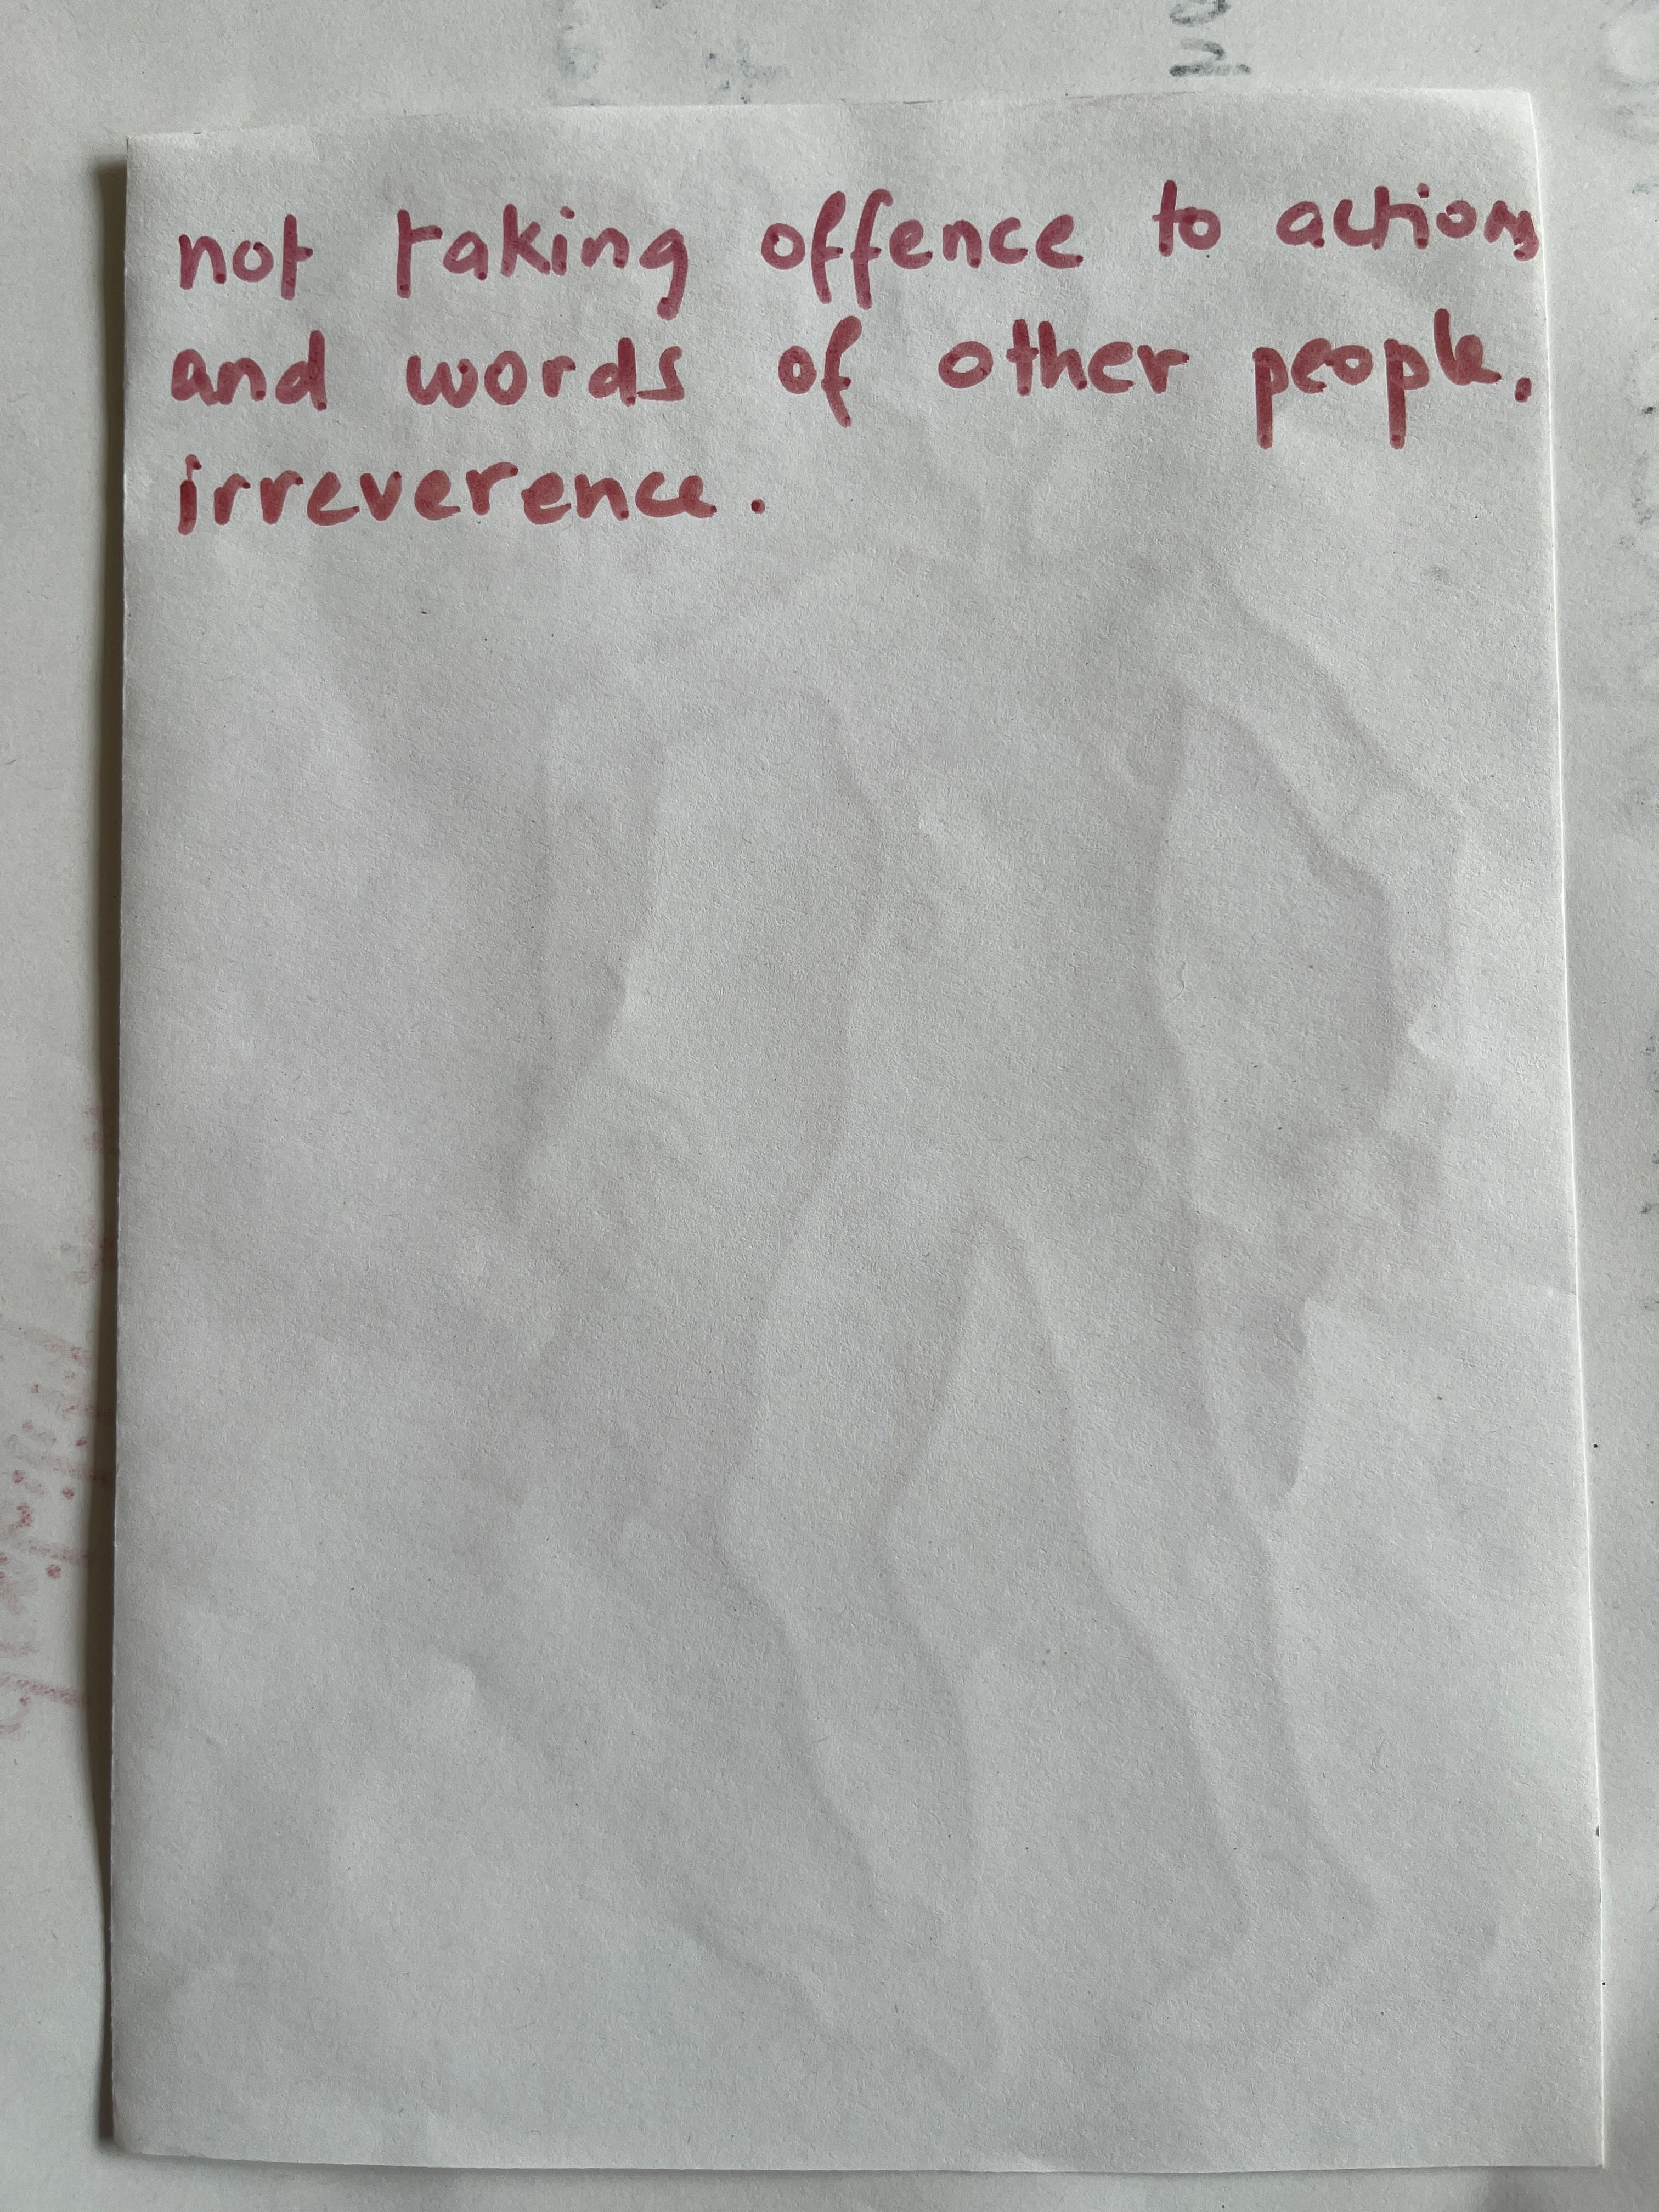 not taking offence to actions
and words of other people.
irreverence.